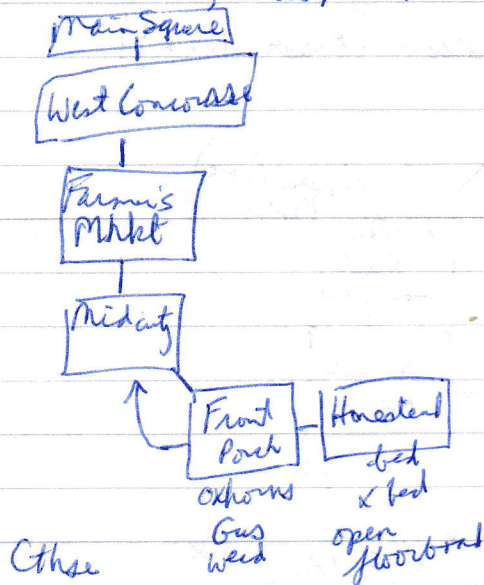 Main Square
West Concourse
Farmer's
Mrkt
Midcity
Front
Porch
Homestead
oxhorns
Gus
weed
bed
x bed
open
floorboard
Cthse